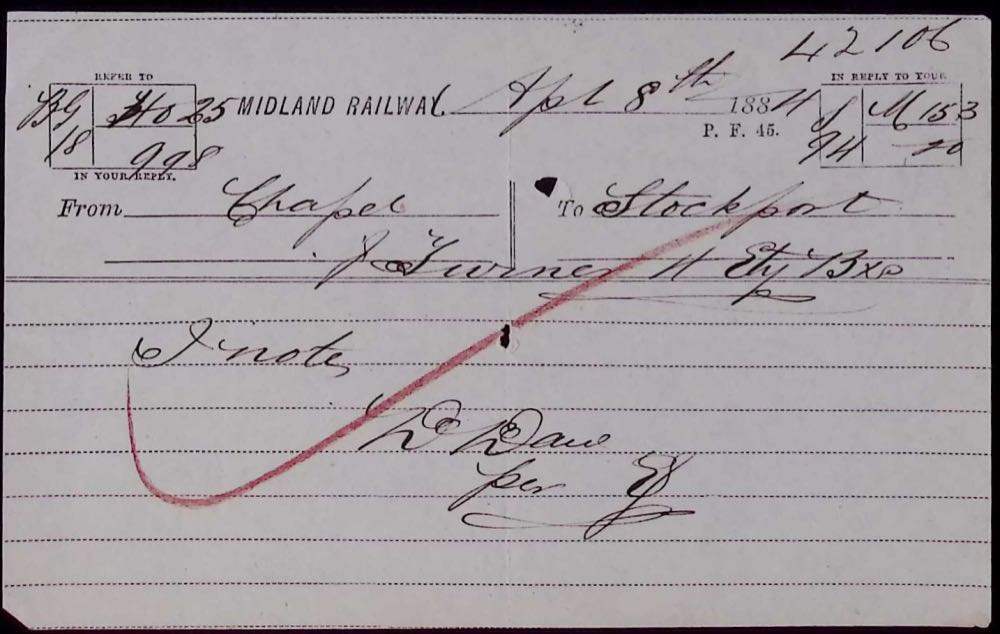 42106
REFER TO
IN REPLY TO YOUR
MIDLAND RAILWAY. Apl 8th 1884
25
M 153
P. F. 45.
18
998
94
20
IN YOUR REPLY.
From Chapel
To Stockport
J Turner 4 Ety Bxs
I note
D Daw
per